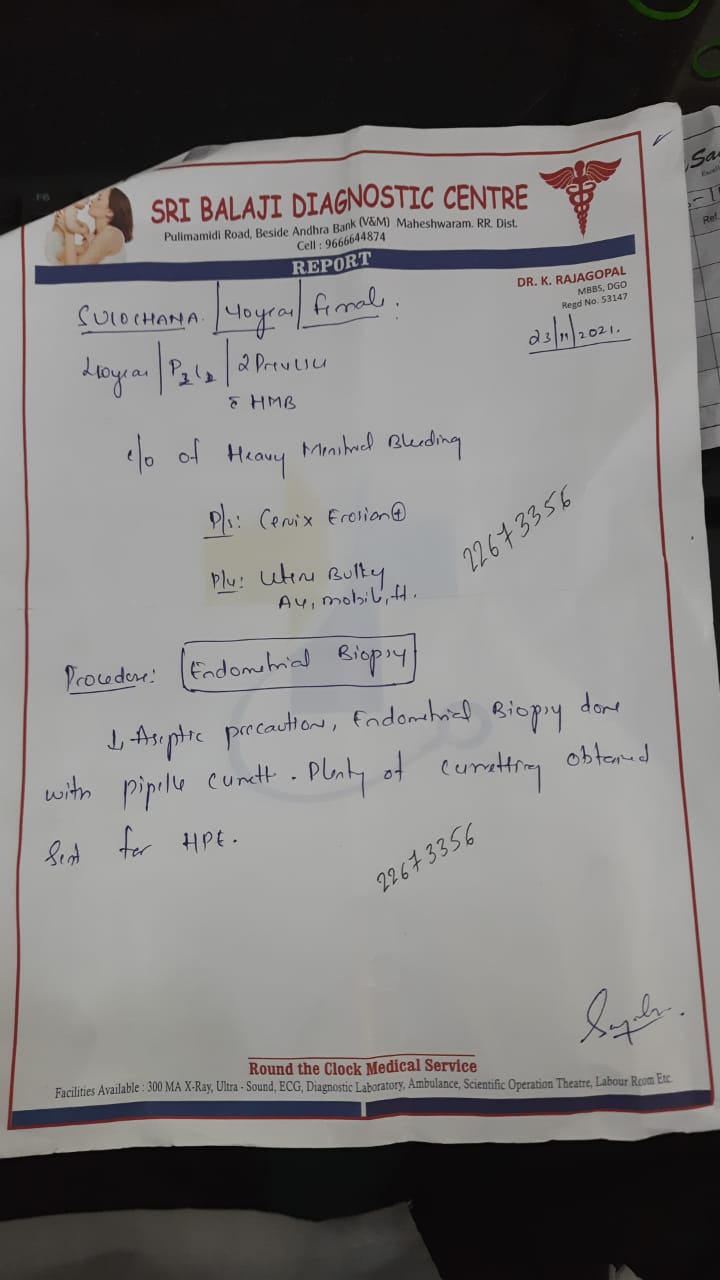 F6
SRI BALAJI DIAGNOSTIC CENTRE
Pulimamidi Road, Beside Andhra Bank (V&M) Maheshwaram. RR. Dist.
Cell : 9666644874
REPORT
DR. K. RAJAGOPAL
MBBS, DGO
Regd No. 53147
23/11/2021.
SULOCHANA. | 40year | female.
40year | P2L2 | 2 Prev LSCS
c̄ HMB
c/o of Heavy Menstrual Bleeding
P/s: Cervix Erosion ⊕
22673356
P/v: Uterus Bulky
AV, mobile, ff.
Procedure: Endometrial Biopsy
Aseptic precaution, Endometrial Biopsy done
with pipelle curett. Plenty of curretting obtained
Sent for HPE.
22673356
Round the Clock Medical Service
Facilities Available : 300 MA X-Ray, Ultra - Sound, ECG, Diagnostic Laboratory, Ambulance, Scientific Operation Theatre, Labour Room Etc.
Sa
Ref.